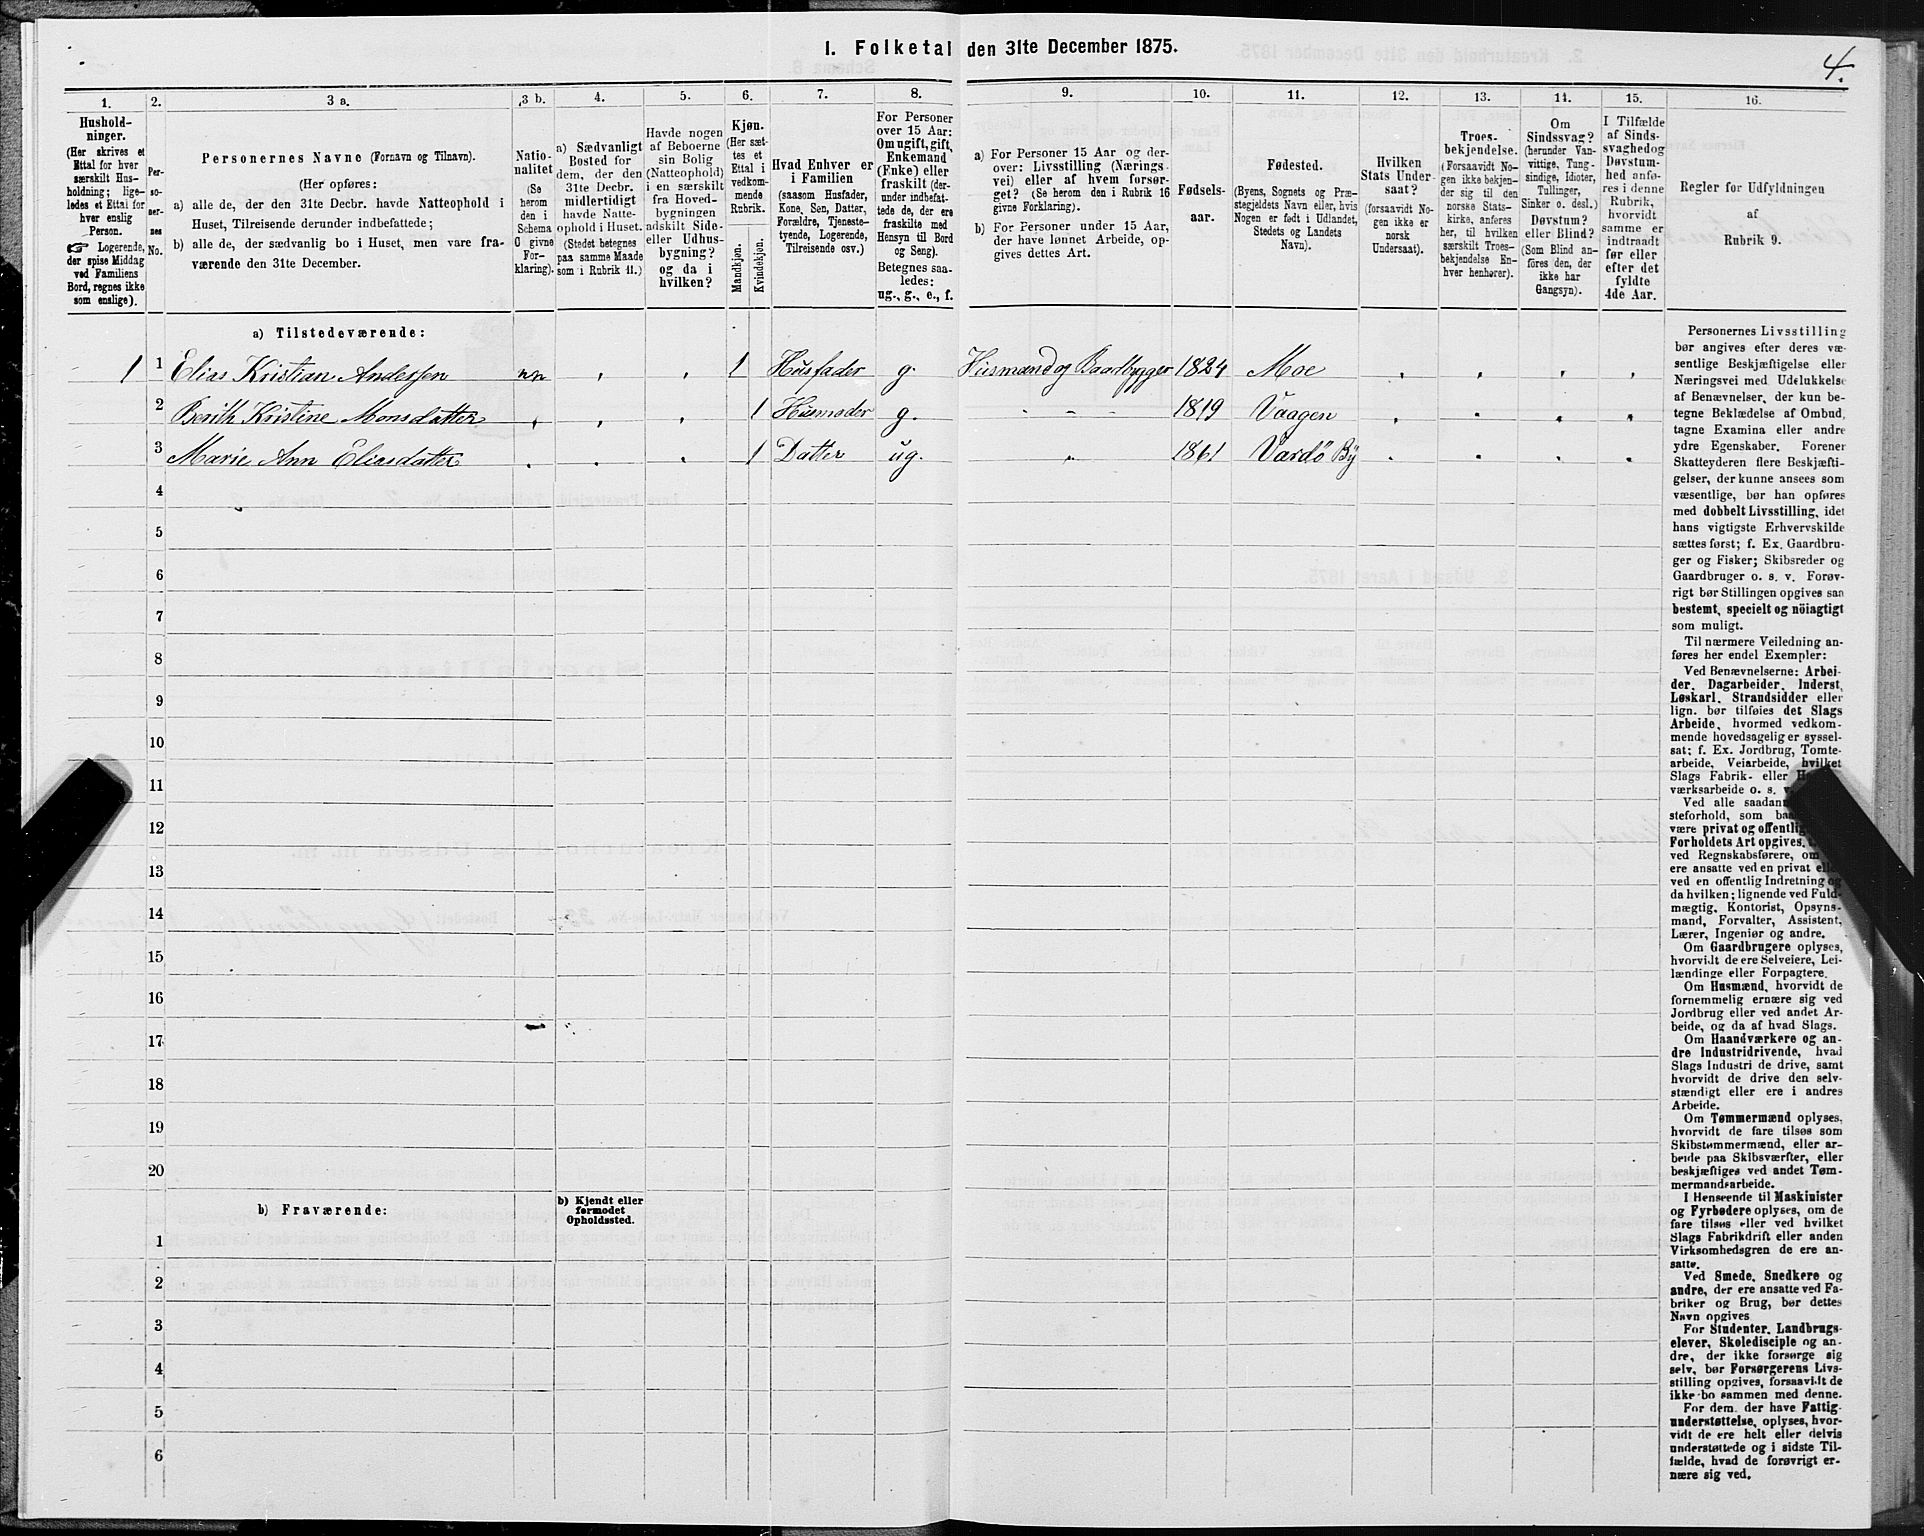 I. Folketal den 31te December 1875.
4.
1.
2.
3 a.
3 b.
4.
5.
6.
7.
8.
9.
10.
11.
12.
13.
14.
15.
16.
Hushold-
ninger.
(Her skrives et
Ettal for hver
særskilt Hus-
holdning; lige-
ledes et Ettal for
hver enslig
Person.
☞ Logerende,
der spise Middag
ved Familiens
Bord, regnes ikke
som enslige).
Per-
so-
ner-
nes
No.
Personernes Navne (Fornavn og Tilnavn).
(Her opføres:
a) alle de, der den 31te Decbr. havde Natteophold i
Huset, Tilreisende derunder indbefattede;
b) alle de, der sædvanlig bo i Huset, men vare fra-
værende den 31te December.
Natio-
nalitet
(Se
herom
den i
Schema
C givne
For-
klaring).
a) Sædvanligt
Bosted for
dem, der den
31te Decbr.
midlertidigt
havde Natte-
ophold i Huset.
(Stedet betegnes
paa samme Maade
som i Rubrik 11.)
Havde nogen
af Beboerne
sin Bolig
(Natteophold)
i en særskilt
fra Hoved-
bygningen
adskilt Side-
eller Udhus-
bygning?
og da i
hvilken?
Kjøn.
(Her sæt-
tes et
Ettal i
vedkom-
mende
Rubrik.
Mandkjøn.
Kvindekjøn.
Hvad Enhver er
i Familien
(saasom Husfader,
Kone, Søn, Datter,
Forældre, Tjeneste-
tyende, Logerende,
Tilreisende osv.)
For Personer
over 15 Aar:
Om ugift, gift,
Enkemand
(Enke) eller
fraskilt (der-
under indbefat-
tede de, der ere
fraskilte med
Hensyn til Bord
og Seng).
Betegnes saa-
ledes:
ug., g., e., f.
a) For Personer 15 Aar og der-
over: Livsstilling (Nærings-
vei) eller af hvem forsør-
get? (Se herom den i Rubrik 16
givne Forklaring).
b) For Personer under 15 Aar,
der have lønnet Arbeide, op-
gives dettes Art.
Fødsels-
aar.
Fødested.
(Byens, Sognets og Præ-
stegjeldets Navn eller, hvis
Nogen er født i Udlandet,
Stedets og Landets
Navn).
Hvilken
Stats Under-
saat?
(forsaavidt No-
gen ikke er
norsk
Undersaat).
Troes-
bekjendelse.
(Forsaavidt No-
gen ikke bekjen-
der sig til den
norske Stats-
kirke, anføres
her, til hvilken
særskilt Troes-
bekjendelse En-
hver henhører).
Om
Sindssvag?
(herunder Van-
vittige, Tung-
sindige, Idioter,
Tullinger,
Sinker o. desl.)
Døvstum?
eller Blind?
(Som Blind an-
føres den, der
ikke har
Gangsyn).
I Tilfælde
af Sinds-
svaghed og
Døvstum-
hed anfø-
res i denne
Rubrik,
hvorvidt
samme er
indtraadt
før eller
efter det
fyldte
4de Aar.
Regler for Udfyldningen
af
Rubrik 9.
a) Tilstedeværende:
1 1 Elias Kristian Andersen nn „ „ 1 Husfader g. Husmand og Baadbygger 1824 Moe „ „ „ „
2 Berith Kristine Monsdatter „ „ „ 1 Husmoder g. „ – – 1819 Vaagen „ „ „ „
3 Marie Ann Eliasdatter „ „ „ 1 Datter ug. „ 1861 Vardö By „ „ „ „
4
5
6
7
8
9
10
11
12
13
14
15
16
17
18
19
20
b) Fraværende:
b) Kjendt eller
formodet
Opholdssted.
1
2
3
4
5
6
Personernes Livsstilling
bør angives efter deres væ-
sentlige Beskjæftigelse eller
Næringsvei med Udelukkelse
af Benævnelser, der kun be-
tegne Beklædelse af Ombud,
tagne Examina eller andre
ydre Egenskaber. Forener
Skatteyderen flere Beskjæfti-
gelser, der kunne ansees som
væsentlige, bør han opføres
med dobbelt Livsstilling, idet
hans vigtigste Erhvervskilde
sættes først; f. Ex. Gaardbru-
ger og Fisker; Skibsreder og
Gaardbruger o. s. v. Forøv-
rigt bør Stillingen opgives saa
bestemt, specielt og nöiagtigt
som muligt.
Til nærmere Veiledning an-
føres her endel Exempler:
Ved Benævnelserne: Arbei-
der, Dagarbeider, Inderst,
Løskarl, Strandsidder eller
lign. bør tilføies det Slags
Arbeide, hvormed vedkom-
mende hovedsagelig er syssel-
sat; f. Ex. Jordbrug, Tomte-
arbeide, Veiarbeide, hvilket
Slags Fabrik- eller
værksarbeide o. s. v.
Ved alle saadan
steforhold, som
være privat og offentlig
Forholdets Art opgives,
ved Regnskabsførere, om
ere ansatte ved en privat
ved en offentlig Indretning og
da hvilken; lignende ved Fuld-
mægtig, Kontorist, Opsyns-
mand, Forvalter, Assistent,
Lærer, Ingeniør og andre.
Om Gaardbrugere oplyses,
hvorvidt de ere Selveiere, Lei-
lændinge eller Forpagtere.
Om Husmænd, hvorvidt de
fornemmelig ernære sig ved
Jordbrug eller ved andet Ar-
beide, og da af hvad Slags.
Om Haandværkere og an-
dre Industridrivende, hvad
Slags Industri de drive, samt
hvorvidt de drive den selv-
stændigt eller ere i andres
Arbeide.
Om Tømmermænd oplyses,
hvorvidt de fare tilsøs som
Skibstømmermænd, eller ar-
beide paa Skibsværfter, eller
beskjæftiges ved andet Tøm-
mermandsarbeide.
I Henseende til Maskinister
og Fyrbødere oplyses, om de
fare tilsøs eller ved hvilket
Slags Fabrikdrift eller anden
Virksomhedsgren de ere an-
satte.
Ved Smede, Snedkere og
andre, der ere ansatte ved Fa-
briker og Brug, bør dettes
Navn opgives.
For Studenter, Landbrugs-
elever, Skoledisciple og an-
dre, der ikke forsørge sig
selv, bør Forsørgerens Livs-
stilling opgives, forsaavidt de
ikke bo sammen med denne.
For dem, der have Fattig-
understøttelse, oplyses, hvor-
vidt de ere helt eller delvis
understøttede og i sidste Til-
fælde, hvad de forøvrigt er-
nære sig ved.